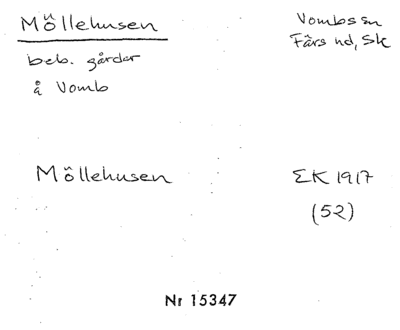 Möllehusen
Vombs sn
Färs hd, Sk
beb. gårdar
å Vomb
Möllehusen
EK 1917
(52)
Nr 15347